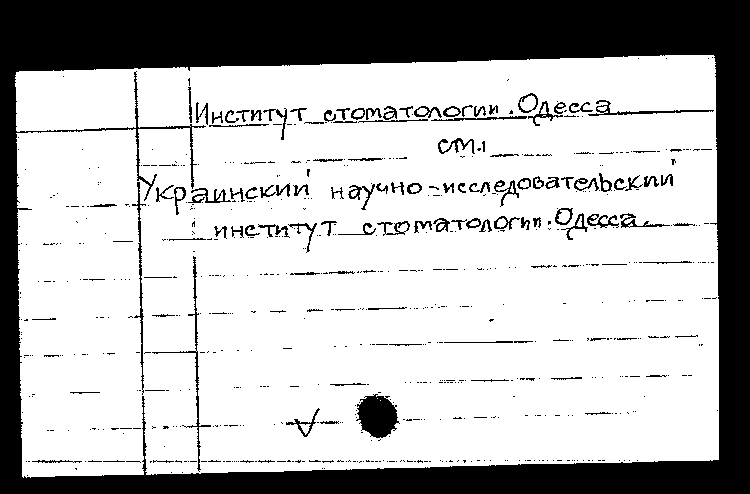 Институт стоматологии. Одесса
см.
Украинский научно-исследовательский
институт стоматологии. Одесса.